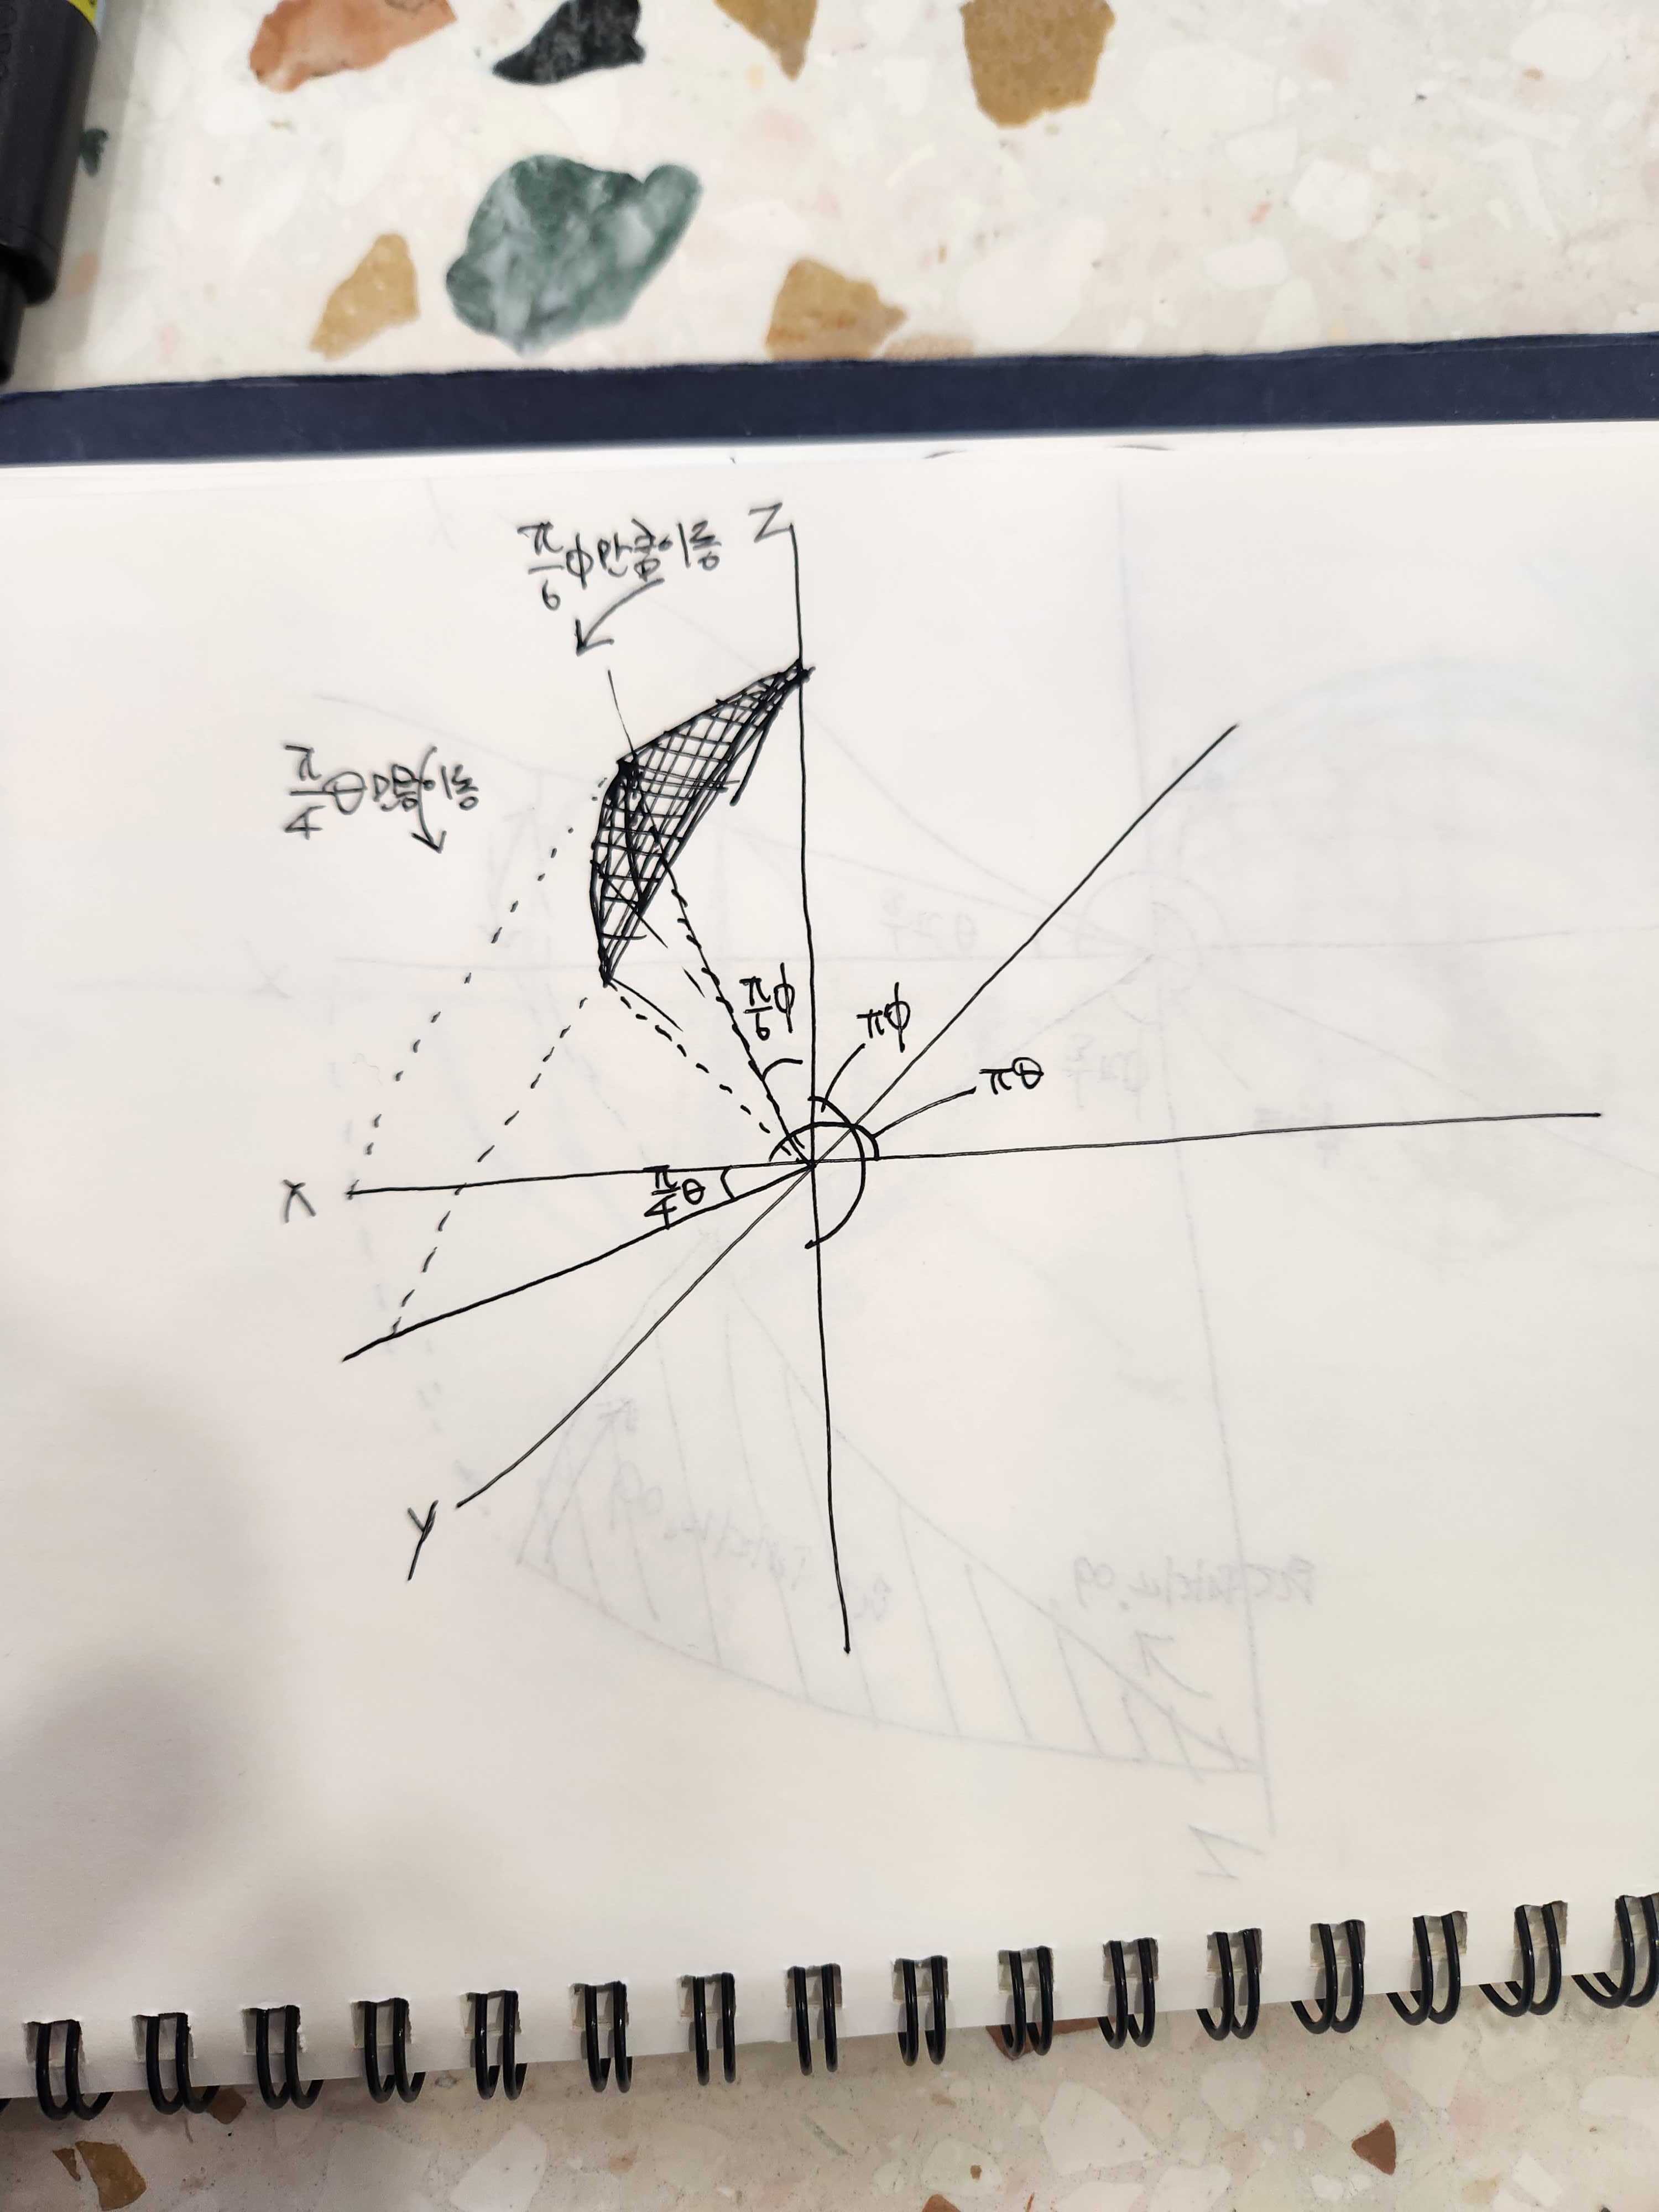 π/6 φ만큼이동
Z
π/4 θ만큼이동
π/6 φ
πφ
πθ
X
π/4 θ
Y